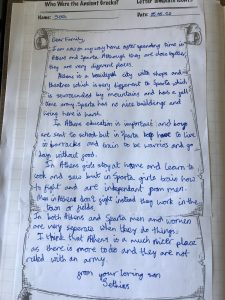 Who Were the Ancient Greeks?
Name:
Date:
Dear Family,
I am now on my way home after spending time in
Athens and Sparta. Although they are close together,
they are very different places.
Athens is a beautiful city with shops and
theatres which is very different to Sparta which
is surrounded by mountains and has a full
time army. Sparta has no nice buildings and
living here is harsh.
In Athens education is important and boys
are sent to school but in Sparta have to live
in barracks and train to be and go
days without food.
In Athens girls stay at home and learn to
cook and sew but in Sparta girls train how
to fight and are independent from men.
Men in Athens don't fight instead they work in the
town or fields.
In both Athens and Sparta men and women
are very separate when they do things.
I think that Athens is a much nicer place
as there is more to do and they are not
ruled with an army.
from your loving son